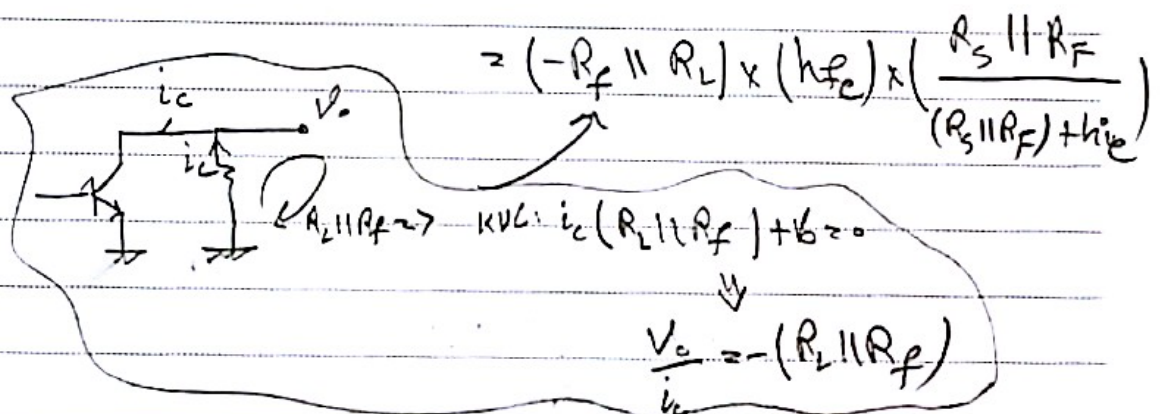 = (-R_f || R_L) x (h_fe) x (R_S || R_F / (R_S || R_F) + h_ie)
i_c
V_o
i_c
R_L || R_f => KVL: i_c (R_L || R_f) + V_o = 0
⇓
V_o / i_c = -(R_L || R_f)